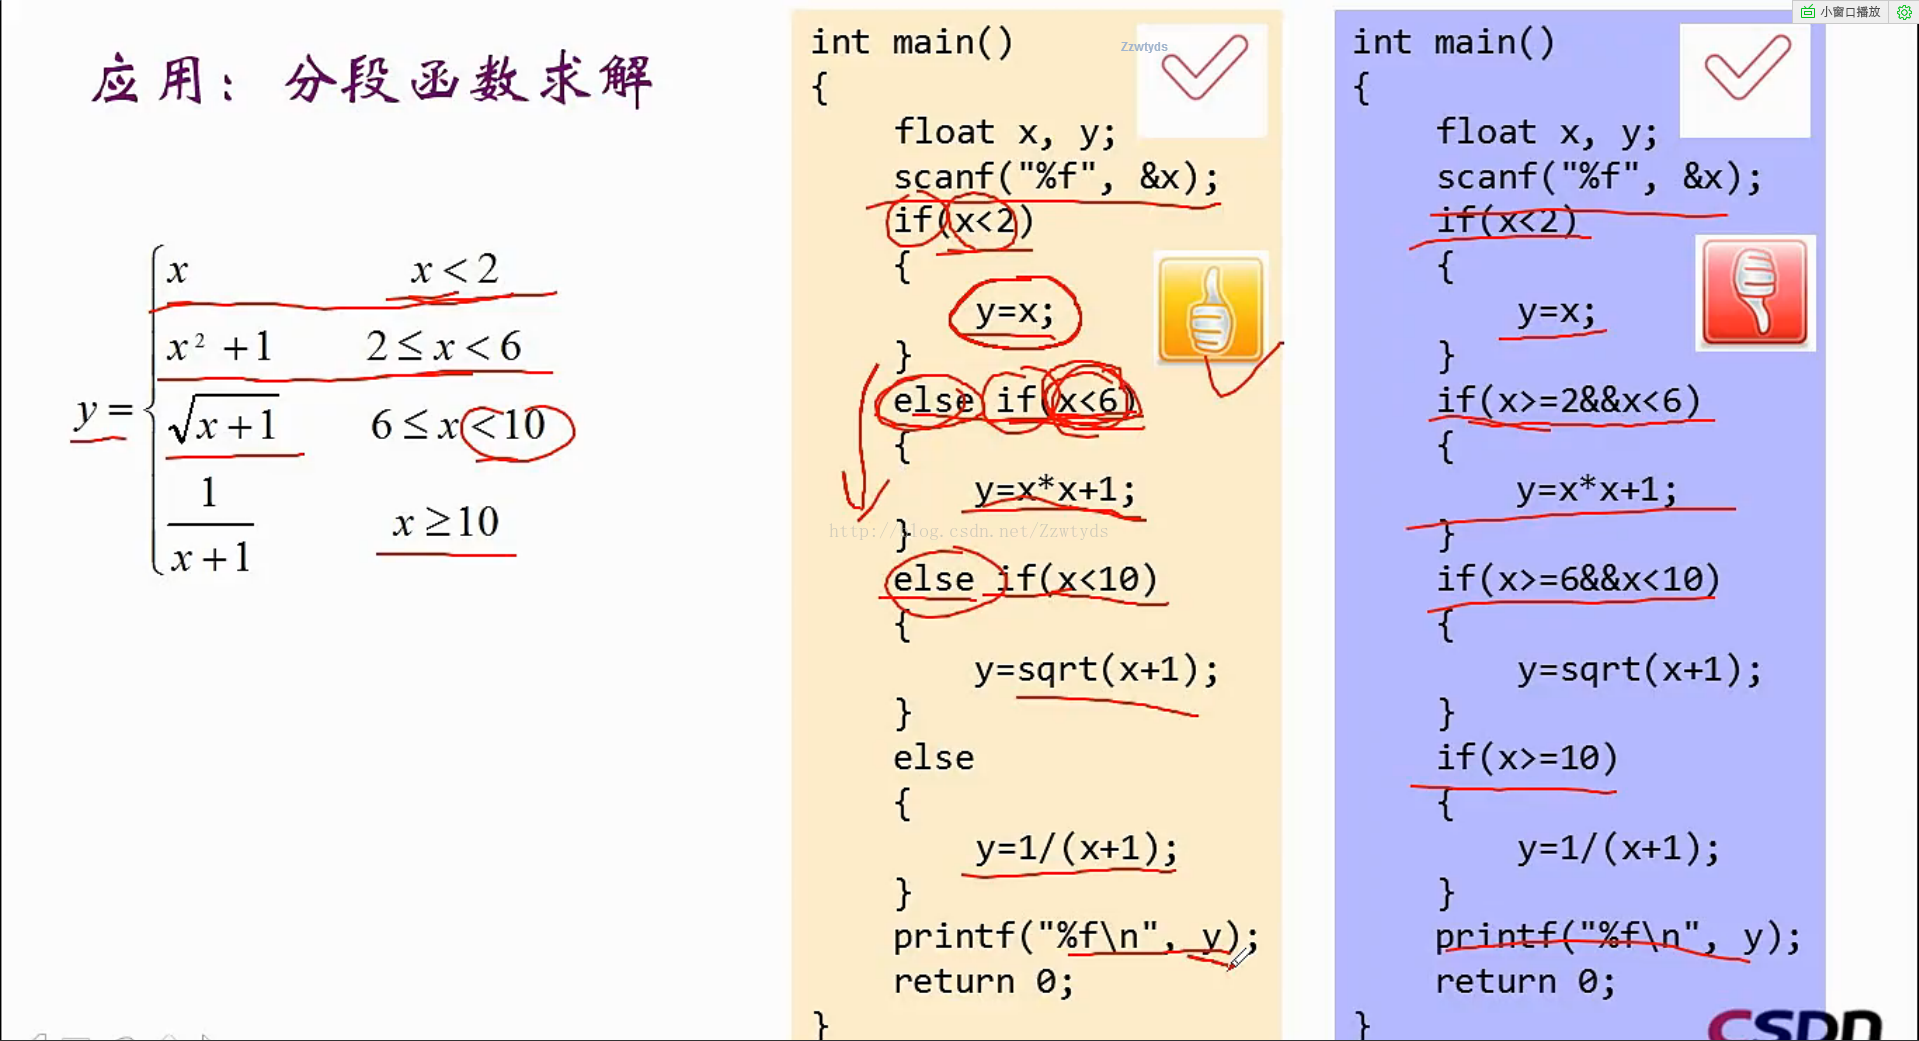 小窗口播放
应用：分段函数求解
y =
x x < 2
x² + 1 2 ≤ x < 6
√x + 1 6 ≤ x < 10
1
x + 1
x ≥ 10
Zzwtyds
int main()
{
float x, y;
scanf("%f", &x);
if(x<2)
{
y=x;
}
else if(x<6)
{
y=x*x+1;
}
http://blog.csdn.net/Zzwtyds
else if(x<10)
{
y=sqrt(x+1);
}
else
{
y=1/(x+1);
}
printf("%f\n", y);
return 0;
}
int main()
{
float x, y;
scanf("%f", &x);
if(x<2)
{
y=x;
}
if(x>=2&&x<6)
{
y=x*x+1;
}
if(x>=6&&x<10)
{
y=sqrt(x+1);
}
if(x>=10)
{
y=1/(x+1);
}
printf("%f\n", y);
return 0;
}
CSDN